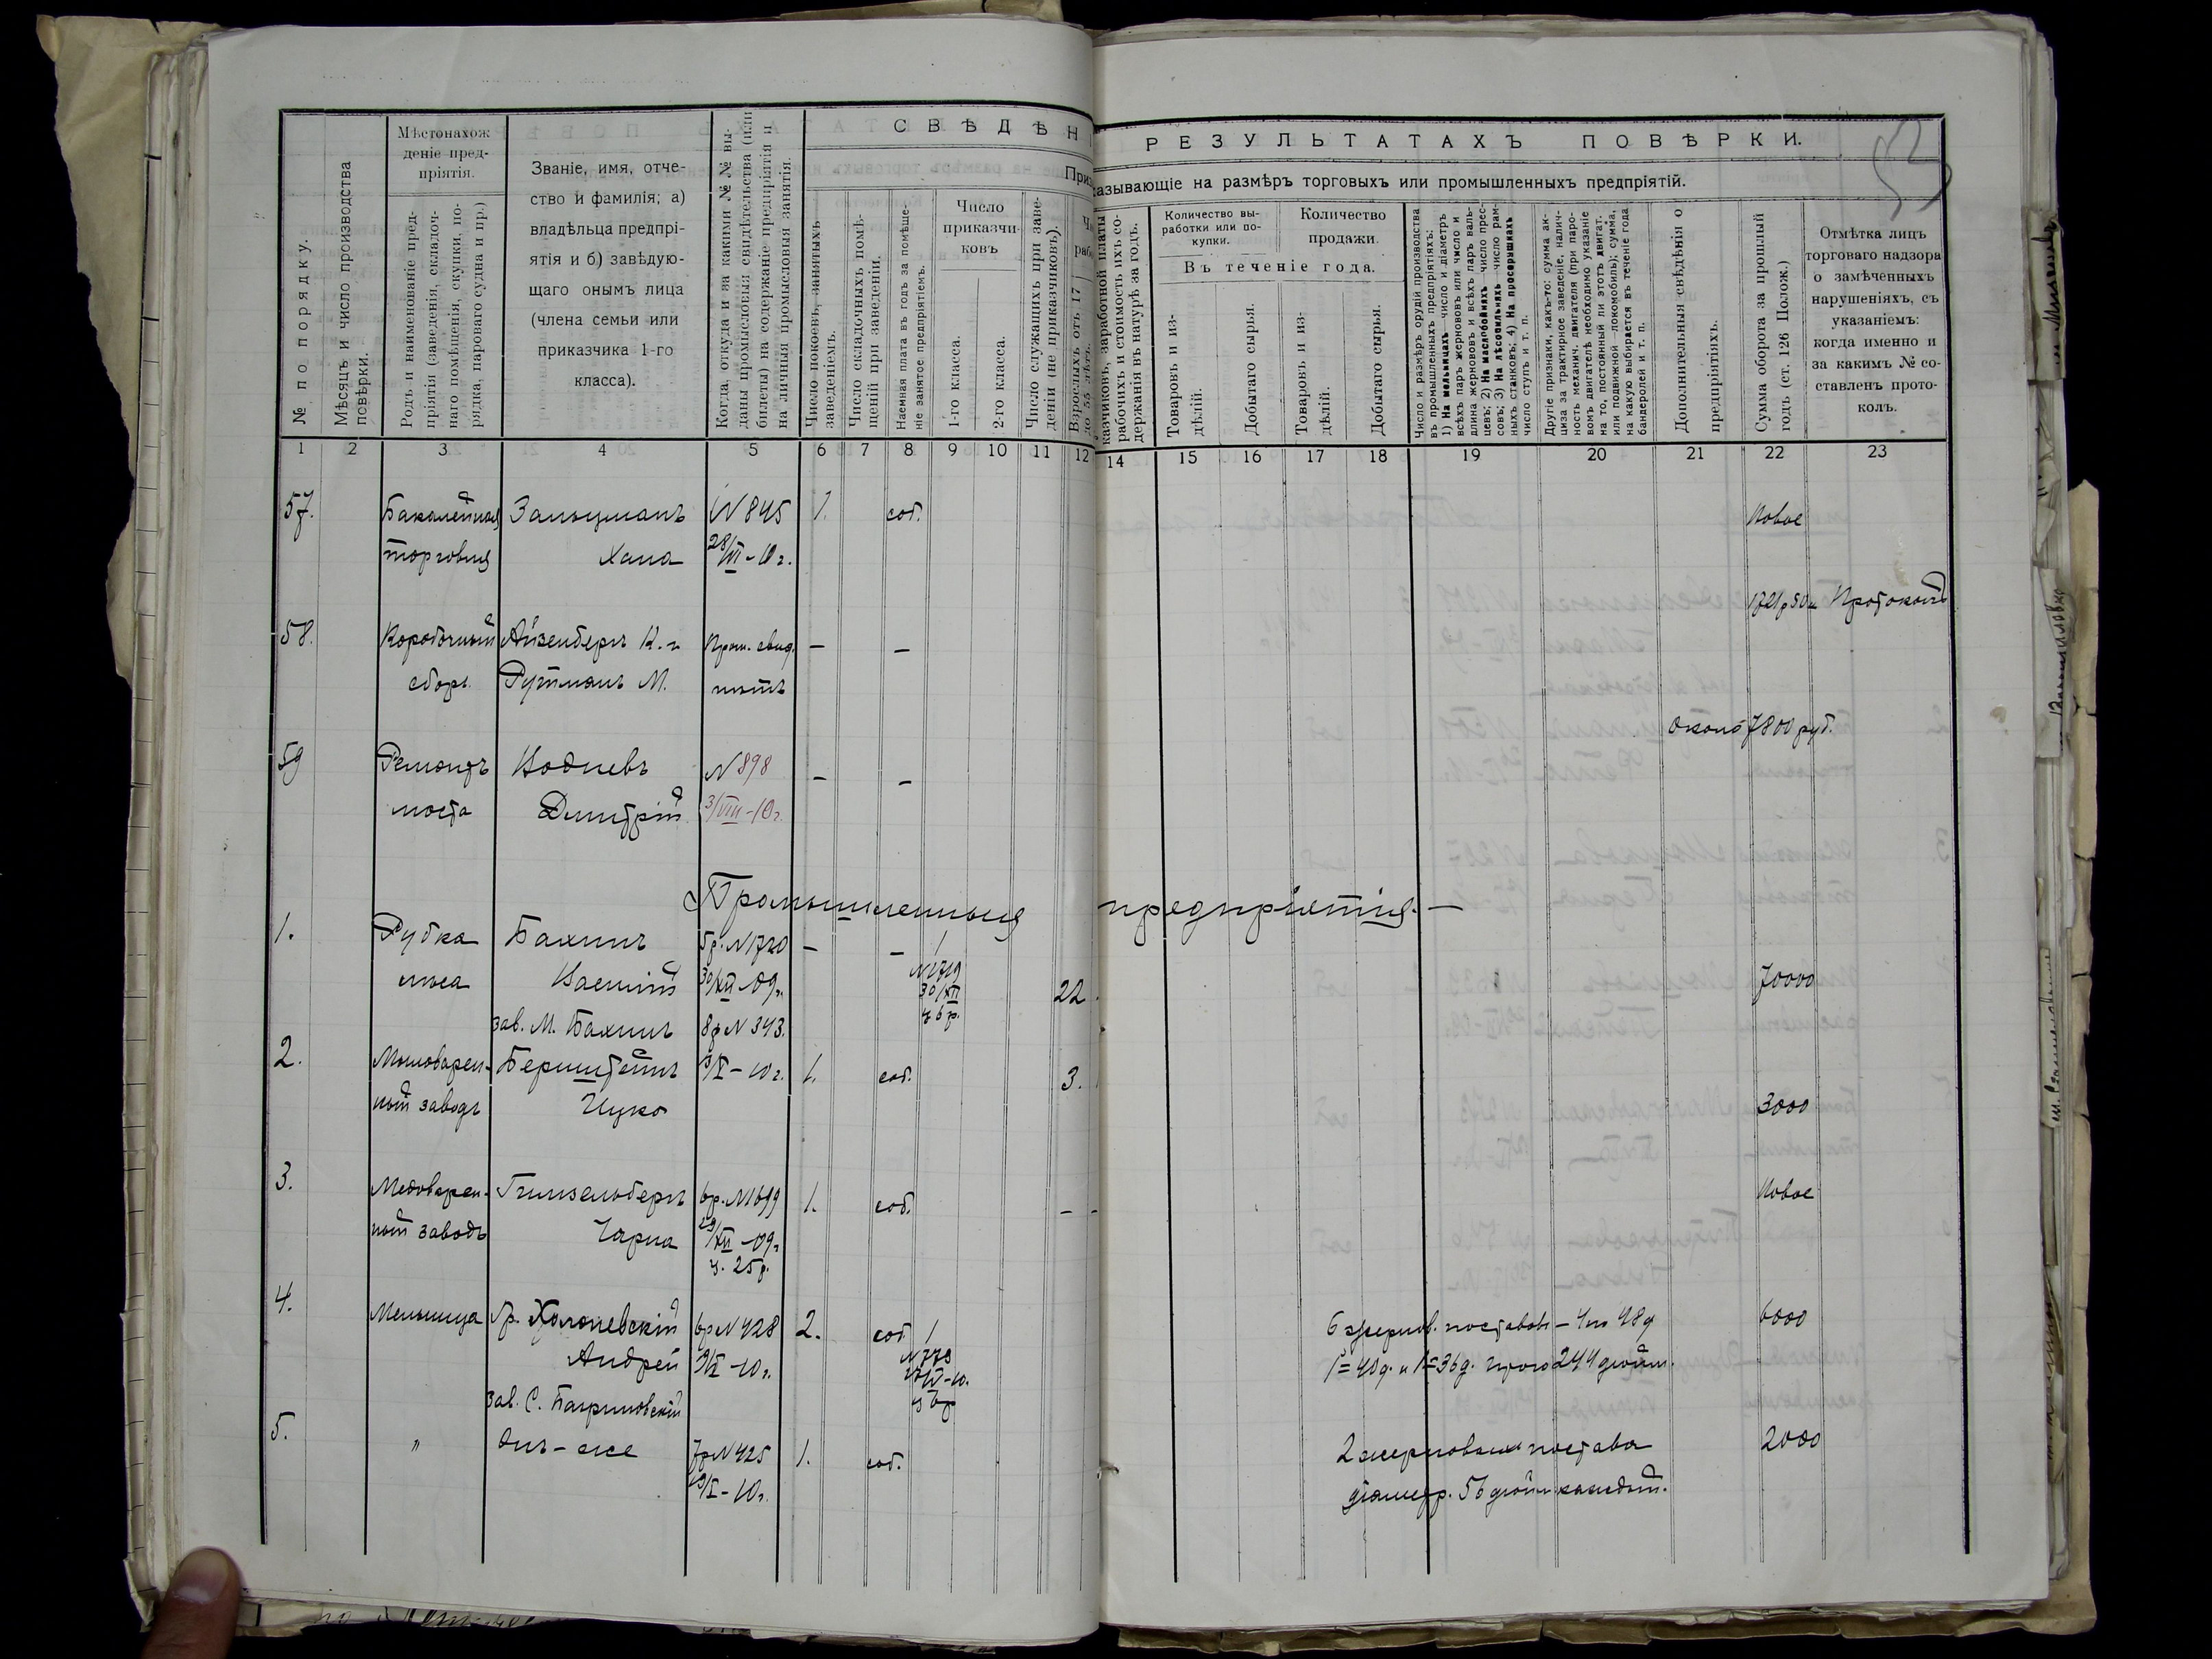 53
СВѢДѢН
РЕЗУЛЬТАТАХЪ ПОВѢРКИ.
Приз
казывающіе на размѣръ торговыхъ или промышленныхъ предпріятій.
№ по порядку.
Мѣсяцъ и число производства
повѣрки.
Мѣстонахож
деніе пред-
пріятія.
Родъ и наименованіе пред-
пріятія (заведенія, складоч-
наго помѣщенія, скупки, по-
рядка, пароваго судна и пр.)
Званіе, имя, отче-
ство и фамилія; а)
владѣльца предпрі-
ятія и б) завѣдую-
щаго онымъ лица
(члена семьи или
приказчика 1-го
класса).
Когда, откуда и за какими №№ вы-
даны промысловыя свидѣтельства (или
билеты) на содержаніе предпріятія и
на личныя промысловыя занятія.
Число покоевъ, занятыхъ
заведеніемъ.
Число складочныхъ помѣ-
щеній при заведеніи.
Наемная плата въ годъ за помѣще-
ніе занятое предпріятіемъ.
Число
приказчи-
ковъ
1-го класса.
2-го класса.
Число служащихъ при заве-
деніи (не приказчиковъ).
Взрослыхъ отъ 17
до 55 лѣтъ.
казчиковъ, заработной платы
рабочихъ и стоимость ихъ со-
держанія въ натурѣ за годъ.
Количество вы-
работки или по-
купки.
Количество
продажи.
Въ теченіе года.
Товаровъ и из-
дѣлій.
Добытаго сырья.
Товаровъ и из-
дѣлій.
Добытаго сырья.
Число и размѣръ орудій производства
въ промышленныхъ предпріятіяхъ:
1) На мельницахъ число и діаметръ
всѣхъ паръ жернововъ или число и
длина жернововъ и всѣхъ паръ валь-
цевъ; 2) На маслобойняхъ число прес-
совъ; 3) На лѣсопильняхъ число рам-
ныхъ станковъ; 4) На просорушкахъ
число ступъ и т. п.
Другіе признаки, какъ-то: сумма ак-
циза за трактирное заведеніе, налич-
ность механич. двигателя (при паро-
вомъ двигателѣ необходимо указаніе
на то, постоянный ли этотъ двигат.
или подвижной локомобиль); сумма,
на какую выбирается въ теченіе года
бандеролей и т. п.
Дополнительныя свѣдѣнія о
предпріятіяхъ.
Сумма оборота за прошлый
годъ (ст. 126 Полож.)
Отмѣтка лицъ
торговаго надзора
о замѣченныхъ
нарушеніяхъ, съ
указаніемъ:
когда именно и
за какимъ № со-
ставленъ прото-
колъ.
1 2 3 4 5 6 7 8 9 10 11 12 14 15 16 17 18 19 20 21 22 23
57. Бакалейная Зальцманъ N 845 1. соб. Новое
торговля Хана 28/VII-10 г.
1721 р 50 к Протоколъ
58. Коробочный Айзенбергъ К. и Пром. свид. — —
сборъ Рутманъ М. нѣтъ
около 7800 руб.
59 Ремонтъ Водневъ N 898 — —
моста Дмитрій 3/VIII-10 г.
Промышленныя предпріятія.—
1. Рубка Бахинъ 5 р. N 1720 — — 1
лѣса Василій 30/XII-09 г. N 1719 30/XII 22 70000
зав. М. Бахинъ 8 р N 343.
2. Мыловарен- Бернштейнъ /I-10 г. 1. соб. 3.
ный заводъ Ицко 3000
3. Медоварен- Гинзельбергъ 6 р. N 1699 1. соб. — — Новое
ный заводъ Чарна 29/XII-09 г.
ц. 25 р.
4. Мельница Гр. Холоневскій 6 р N 428 2. соб. 1 6 жернов. поставовъ — 4 по 48 д 6000
Андрей /I-10 г. 1 = 40 д. и 1 = 36 д. Итого 244 дюйм.
зав. С. Багриновскій
5. „ онъ-же 7 р N 425 1. соб. 2 жерновыхъ постава 2000
19/I-10 г. діаметр. 56 дюйм каждый.